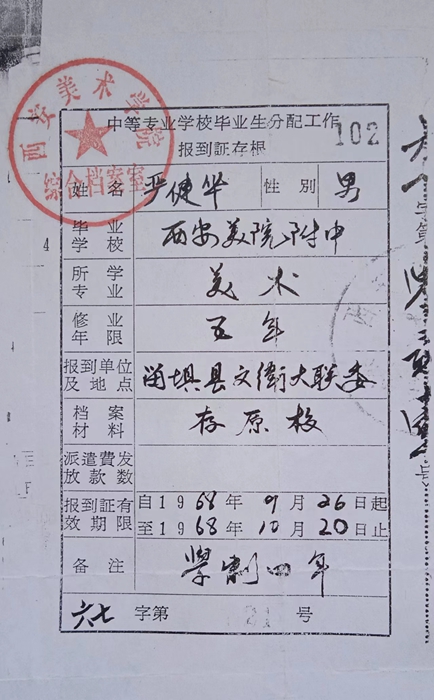 西安美术学院
综合档案室
中等专业学校毕业生分配工作
报到証存根
102
姓名 严健华 性别 男
毕业学校 西安美院附中
所学专业 美术
修业年限 五年
报到单位及地点 县文衛大联委
档案材料 存原校
派遣費发放款数
报到証有效期限 自1968年9月26日起
至1968年10月20日止
备注 學制四年
六七字第 21 号